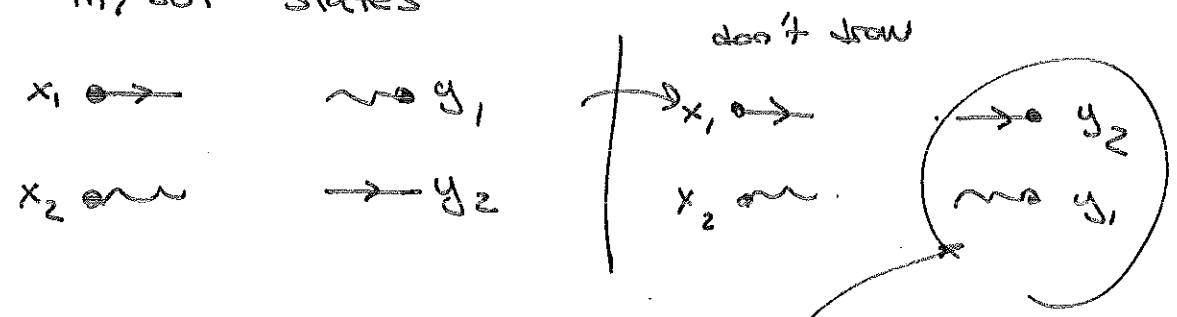 in/out states
don't draw
x₁ y₁ x₁ y₂
x₂ y₂ x₂ y₁